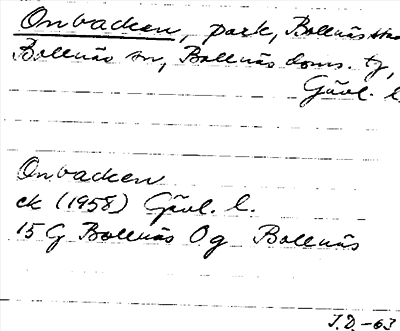 Onbacken, park, Bollnäs
Bollnäs sn, Bollnäs doms. tg,
Gävl. l.
Onbacken
ek (1958) Gävl. l.
15 G Bollnäs 0 g Bollnäs
J.D.-63